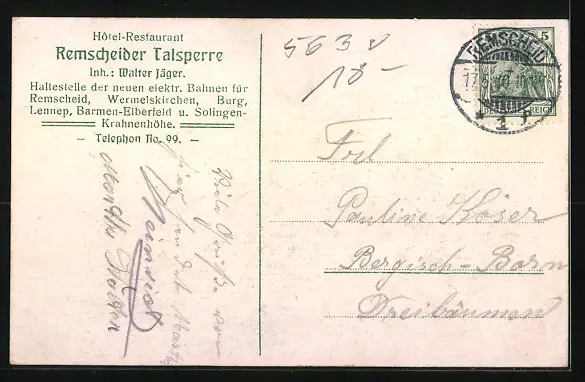 Hôtel-Restaurant
Remscheider Talsperre
Inh.: Walter Jäger.
Haltestelle der neuen elektr. Bahnen für
Remscheid, Wermelskirchen, Burg,
Lennep, Barmen-Elberfeld u. Solingen-
Krahnenhöhe.
Telephon No. 99.
5
REMSCHEID
1
REICH
563
18-
Frl
Pauline Köser
Bergisch-Born
Dreibäumen
Viele Grüße von
Heinrich
Martha